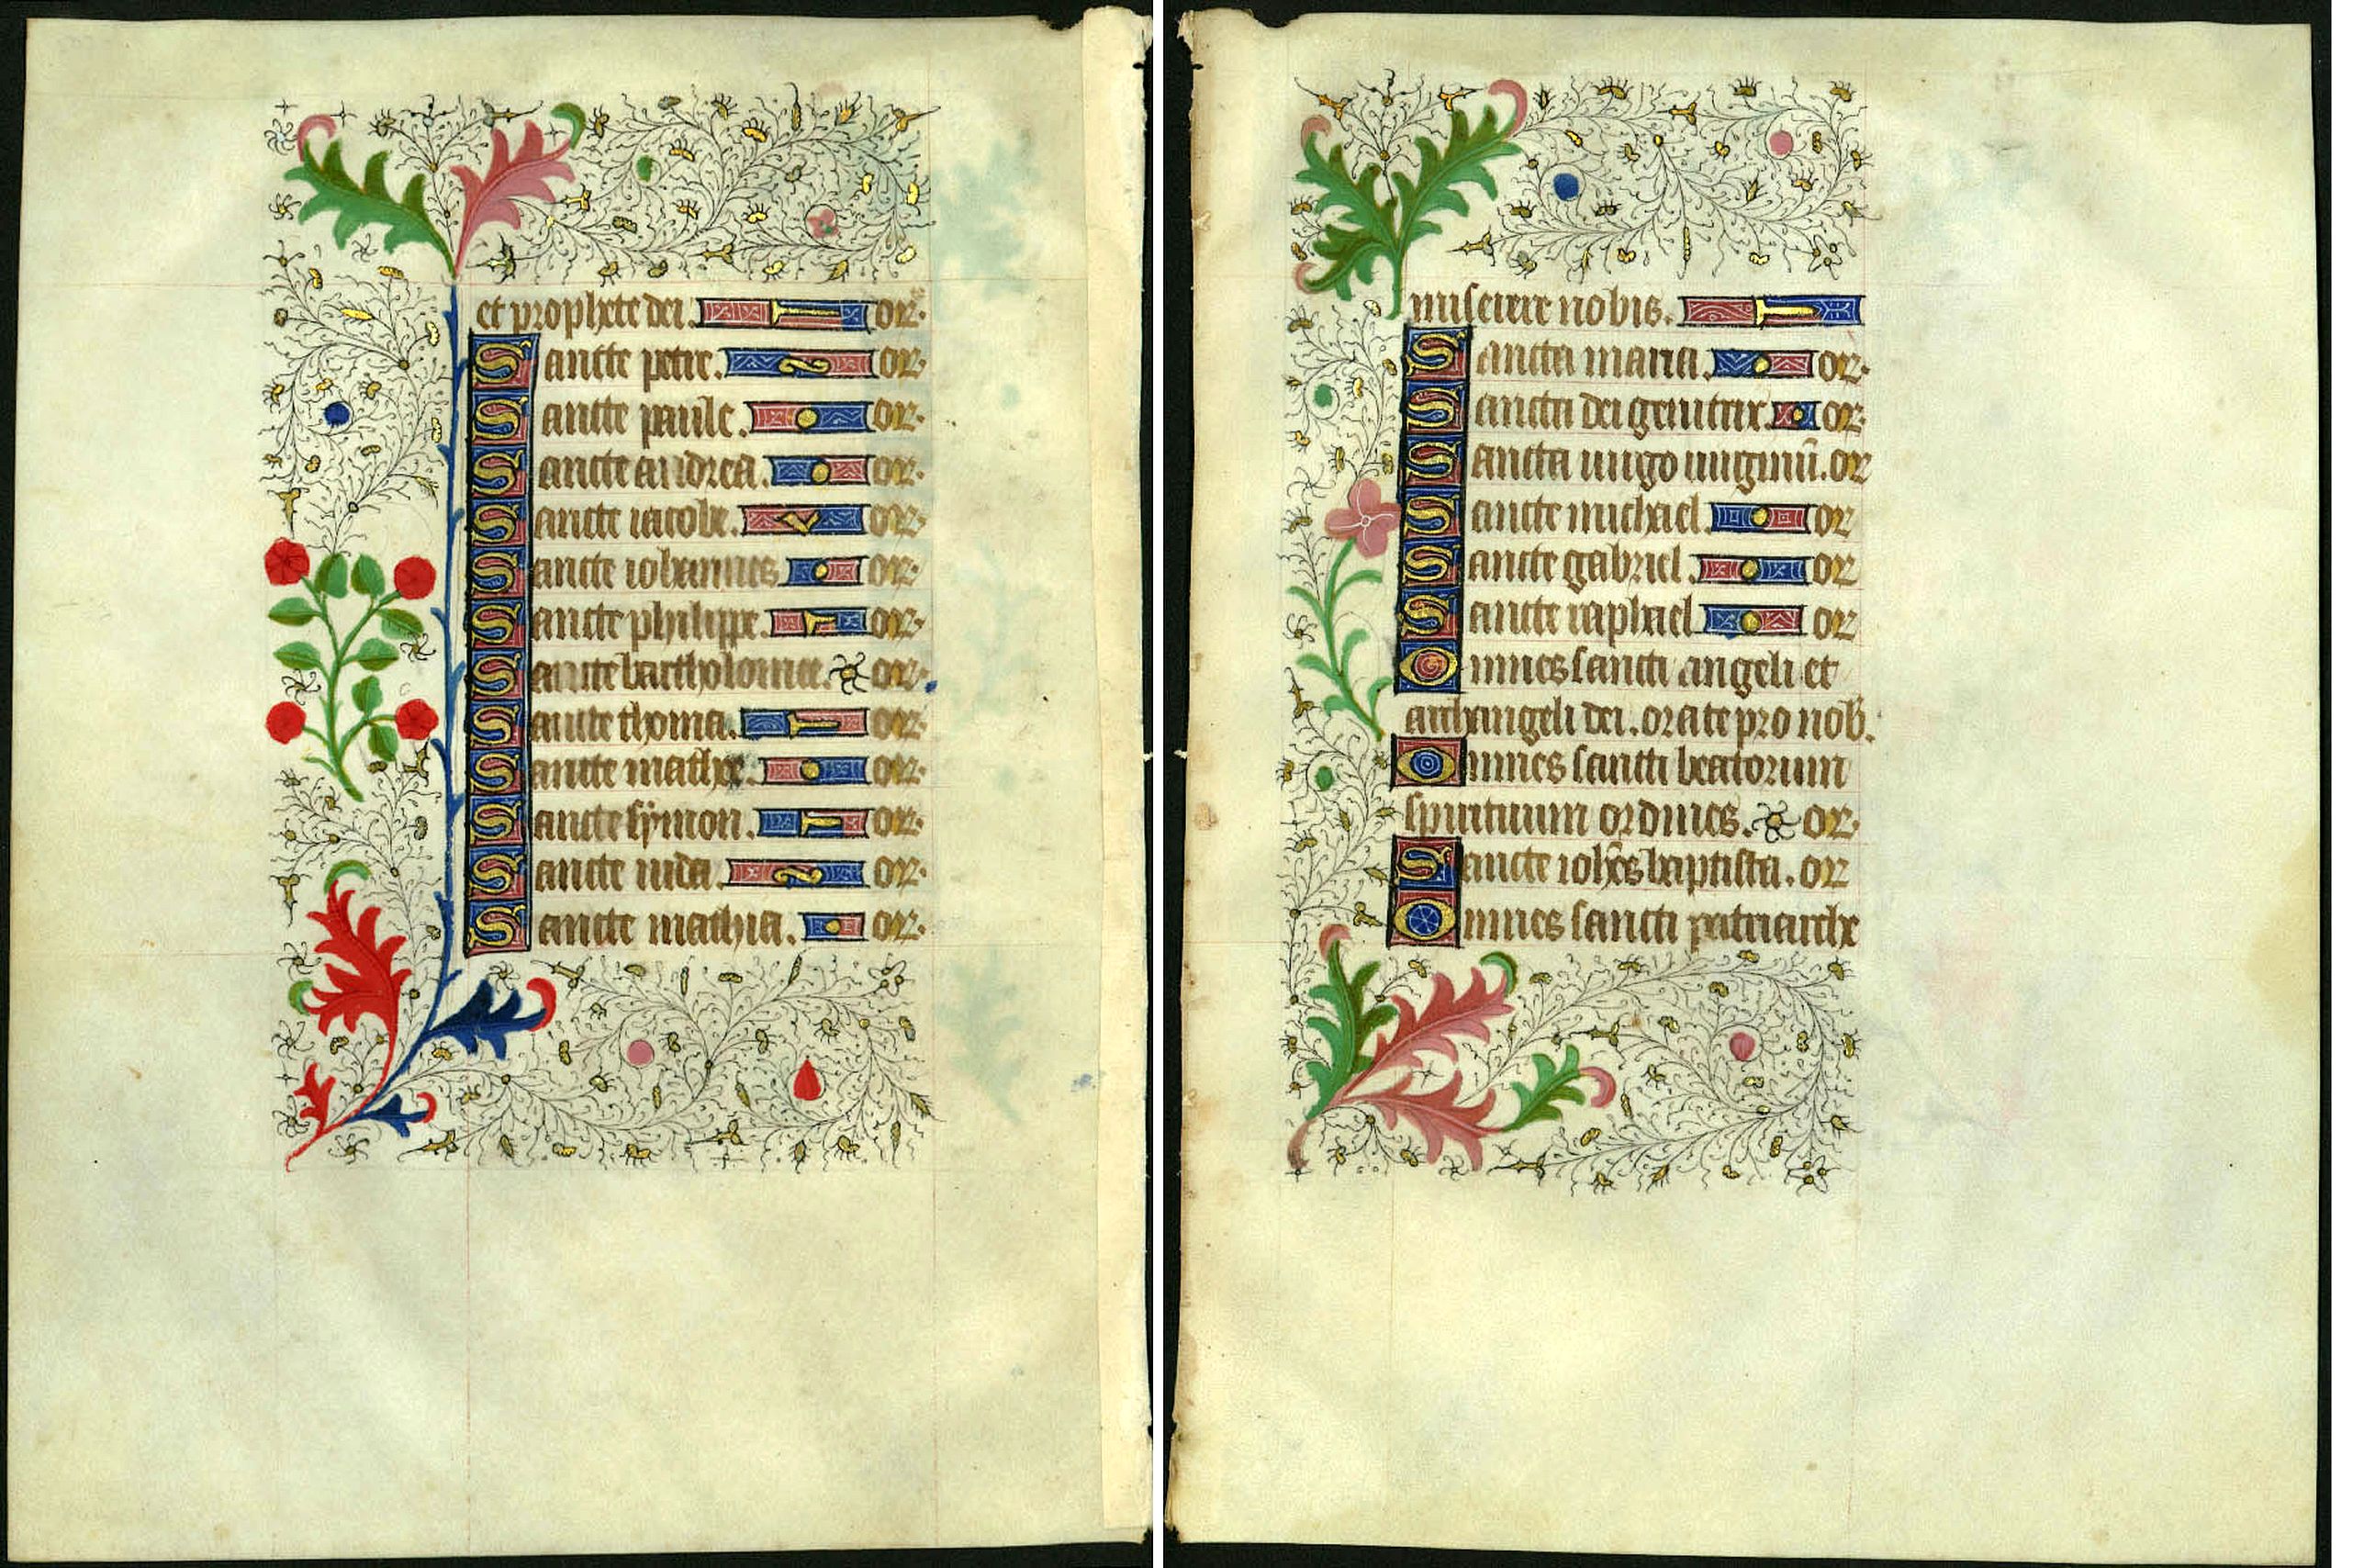 et prophete dei. or.
Sancte petre. or.
Sancte paule. or.
Sancte andrea. or.
Sancte iacobe. or.
Sancte iohannes or.
Sancte philippe. or.
Sancte bartholomee. or.
Sancte thoma. or.
Sancte mathee. or.
Sancte sÿmon. or.
Sancte iuda. or.
Sancte mathia. or.
miserere nobis.
Sancta maria. or.
Sancta dei genitrix. or.
Sancta uirgo uirginũ. or
Sancte michael. or
Sancte gabriel. or
Sancte raphael or
Omnes sancti angeli et
archangeli dei. orate pro nob.
Omnes sancti beatorum
spirituum ordines. or.
Sancte ioh̃es baptista. or
Omnes sancti patriarche